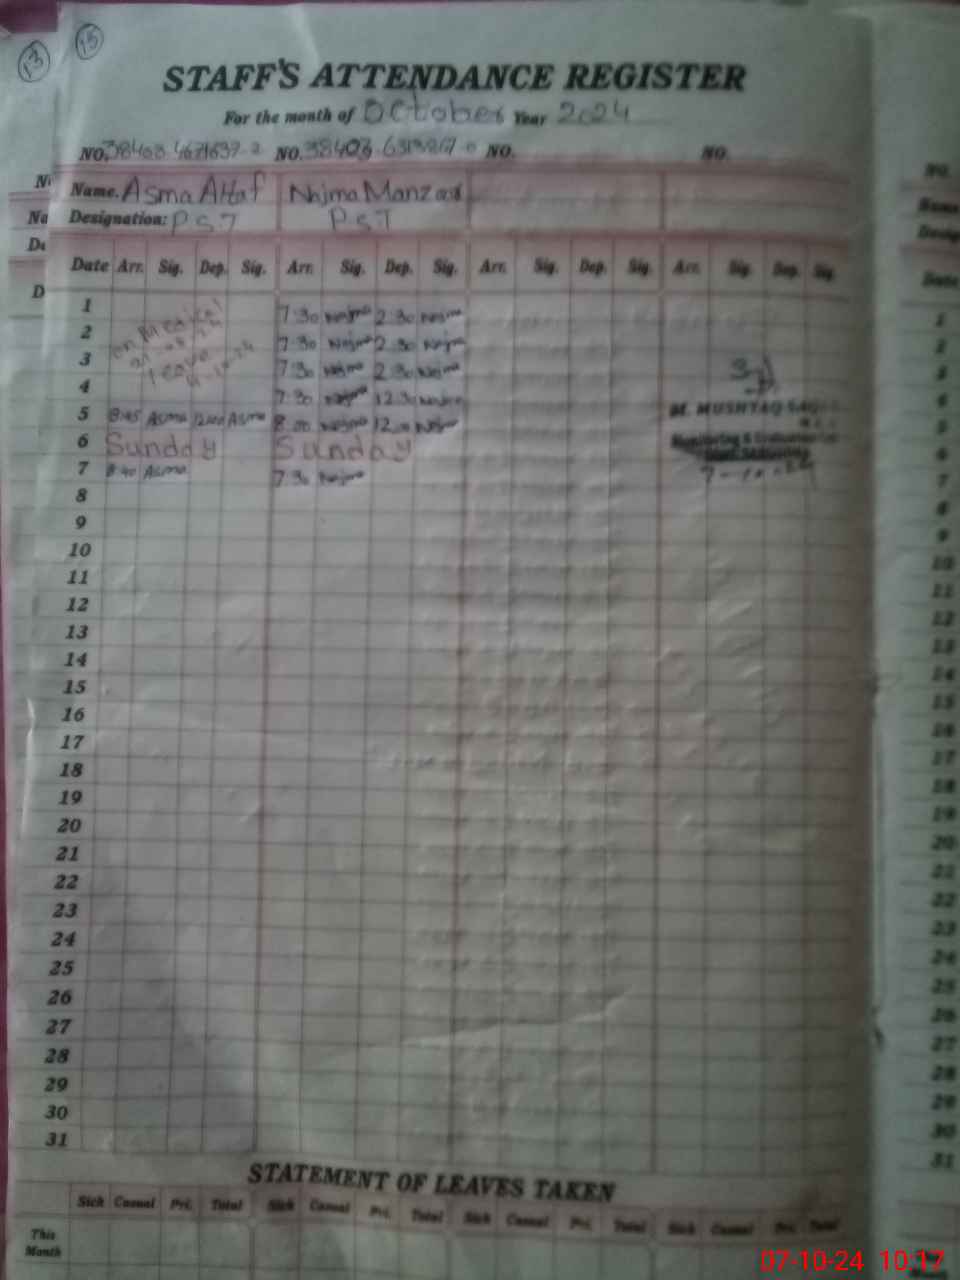 13 15
STAFF'S ATTENDANCE REGISTER
For the month of October Year 2024
NO. NO. NO. NO.
Name. Asma Altaf Najma Manzoor
Designation: P.S.T P.S.T
Date Arr. Sig. Dep. Sig. Arr. Sig. Dep. Sig. Arr. Sig. Dep. Sig. Arr. Sig. Dep. Sig.
1 on Medical 7:30 Najma 2:30 Najma
2 7:30 Najma 2:30 Najma
3 Leave 7:30 Najma 2:30 Najma
4 7:30 Najma 12:30 Najma
5 8:45 Asma 12:00 Asma 8:00 Najma 12:00 Najma
M. MUSHTAQ
6 Sunday Sunday
Monitoring & Evaluation
7 8:40 Asma 7:30 Najma
8
9
10
11
12
13
14
15
16
17
18
19
20
21
22
23
24
25
26
27
28
29
30
31
STATEMENT OF LEAVES TAKEN
Sick Casual Pri. Total Sick Casual Pri. Total Sick Casual Pri. Total Sick Casual Pri. Total
This
Month
07-10-24 10:17